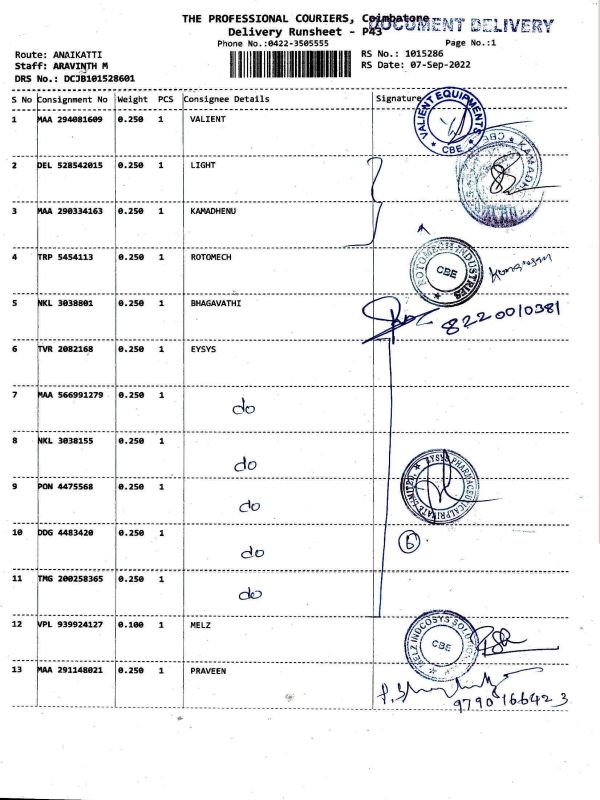 THE PROFESSIONAL COURIERS, Coimbatore
DOCUMENT DELIVERY
Delivery Runsheet - P43
Phone No.:0422-3505555 Page No.:1
Route: ANAIKATTI RS No.: 1015286
Staff: ARAVINTH M RS Date: 07-Sep-2022
DRS No.: DCJB101528601
S No Consignment No Weight PCS Consignee Details Signature
1 MAA 294081609 0.250 1 VALIENT
VALIENT EQUIPMENTS CBE
2 DEL 528542015 0.250 1 LIGHT
KAMADHE CBE
3 MAA 290334163 0.250 1 KAMADHENU
4 TRP 5454113 0.250 1 ROTOMECH
ROTOMECH INDUSTRIES CBE
5 NKL 3038801 0.250 1 BHAGAVATHI
8220010381
6 TVR 2082168 0.250 1 EYSYS
7 MAA 566991279 0.250 1 do
8 NKL 3038155 0.250 1 do
EYSYS PHARMACEUTICAL PRIVATE LIMITED
9 PON 4475568 0.250 1 do
10 DDG 4483420 0.250 1 do
6
11 TMG 200258365 0.250 1 do
12 VPL 939924127 0.100 1 MELZ
MELZ INDCOSYS SOLUTION CBE
13 MAA 291148021 0.250 1 PRAVEEN
9790166423